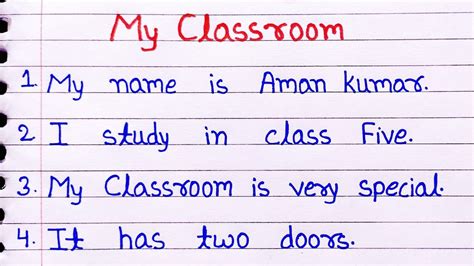 My Classroom
1. My name is Aman Kumar.
2 I study in class Five.
3. My Classroom is very special.
4. It has two doors.